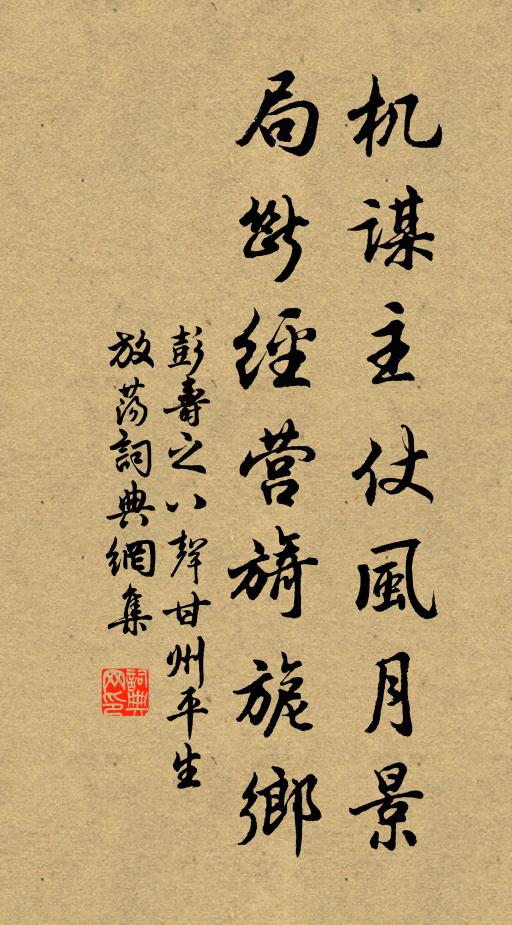 机谋主仗風月景
局斷經营旖旎鄉
彭壽之八聲甘州平生
放蕩詞典網集
詞典
网印